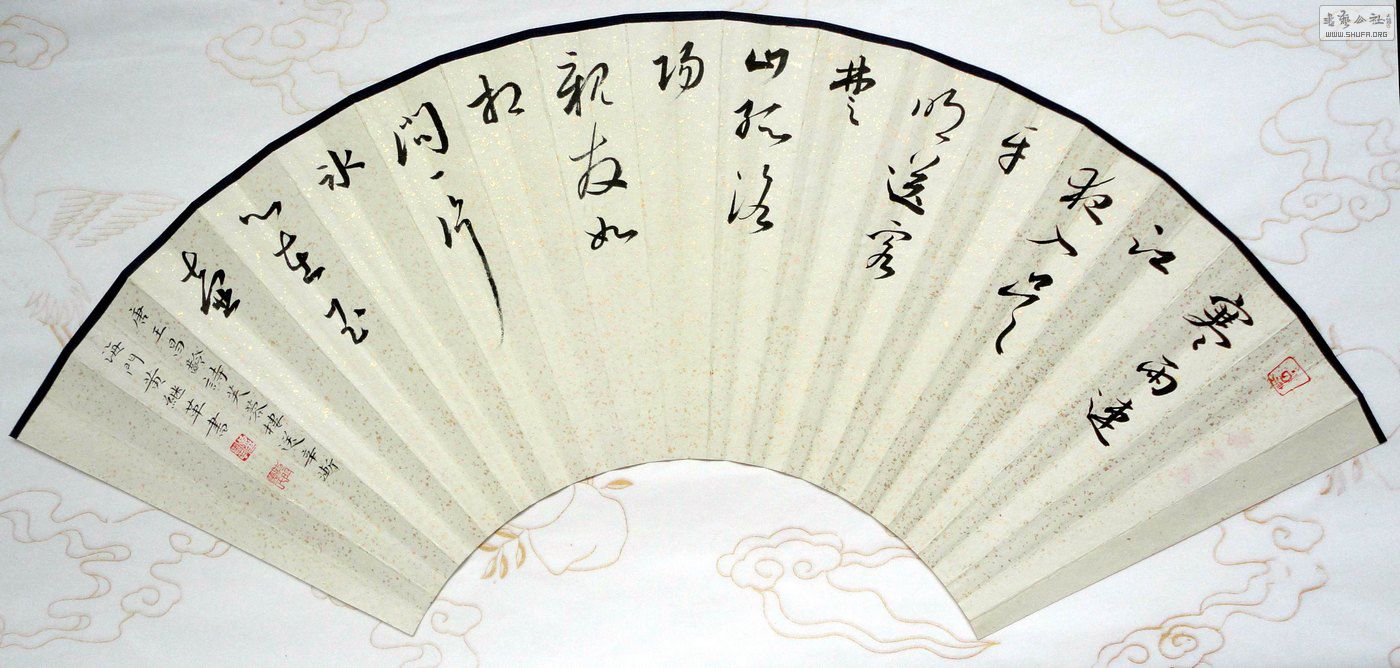 寒雨連
江
夜入吳
平
明送客
楚
山孤洛
陽
親友如
相
問一片
冰
心在玉
壺
唐王昌齡詩芙蓉樓送辛漸
海門黃繼革書
WWW.SHUFA.ORG